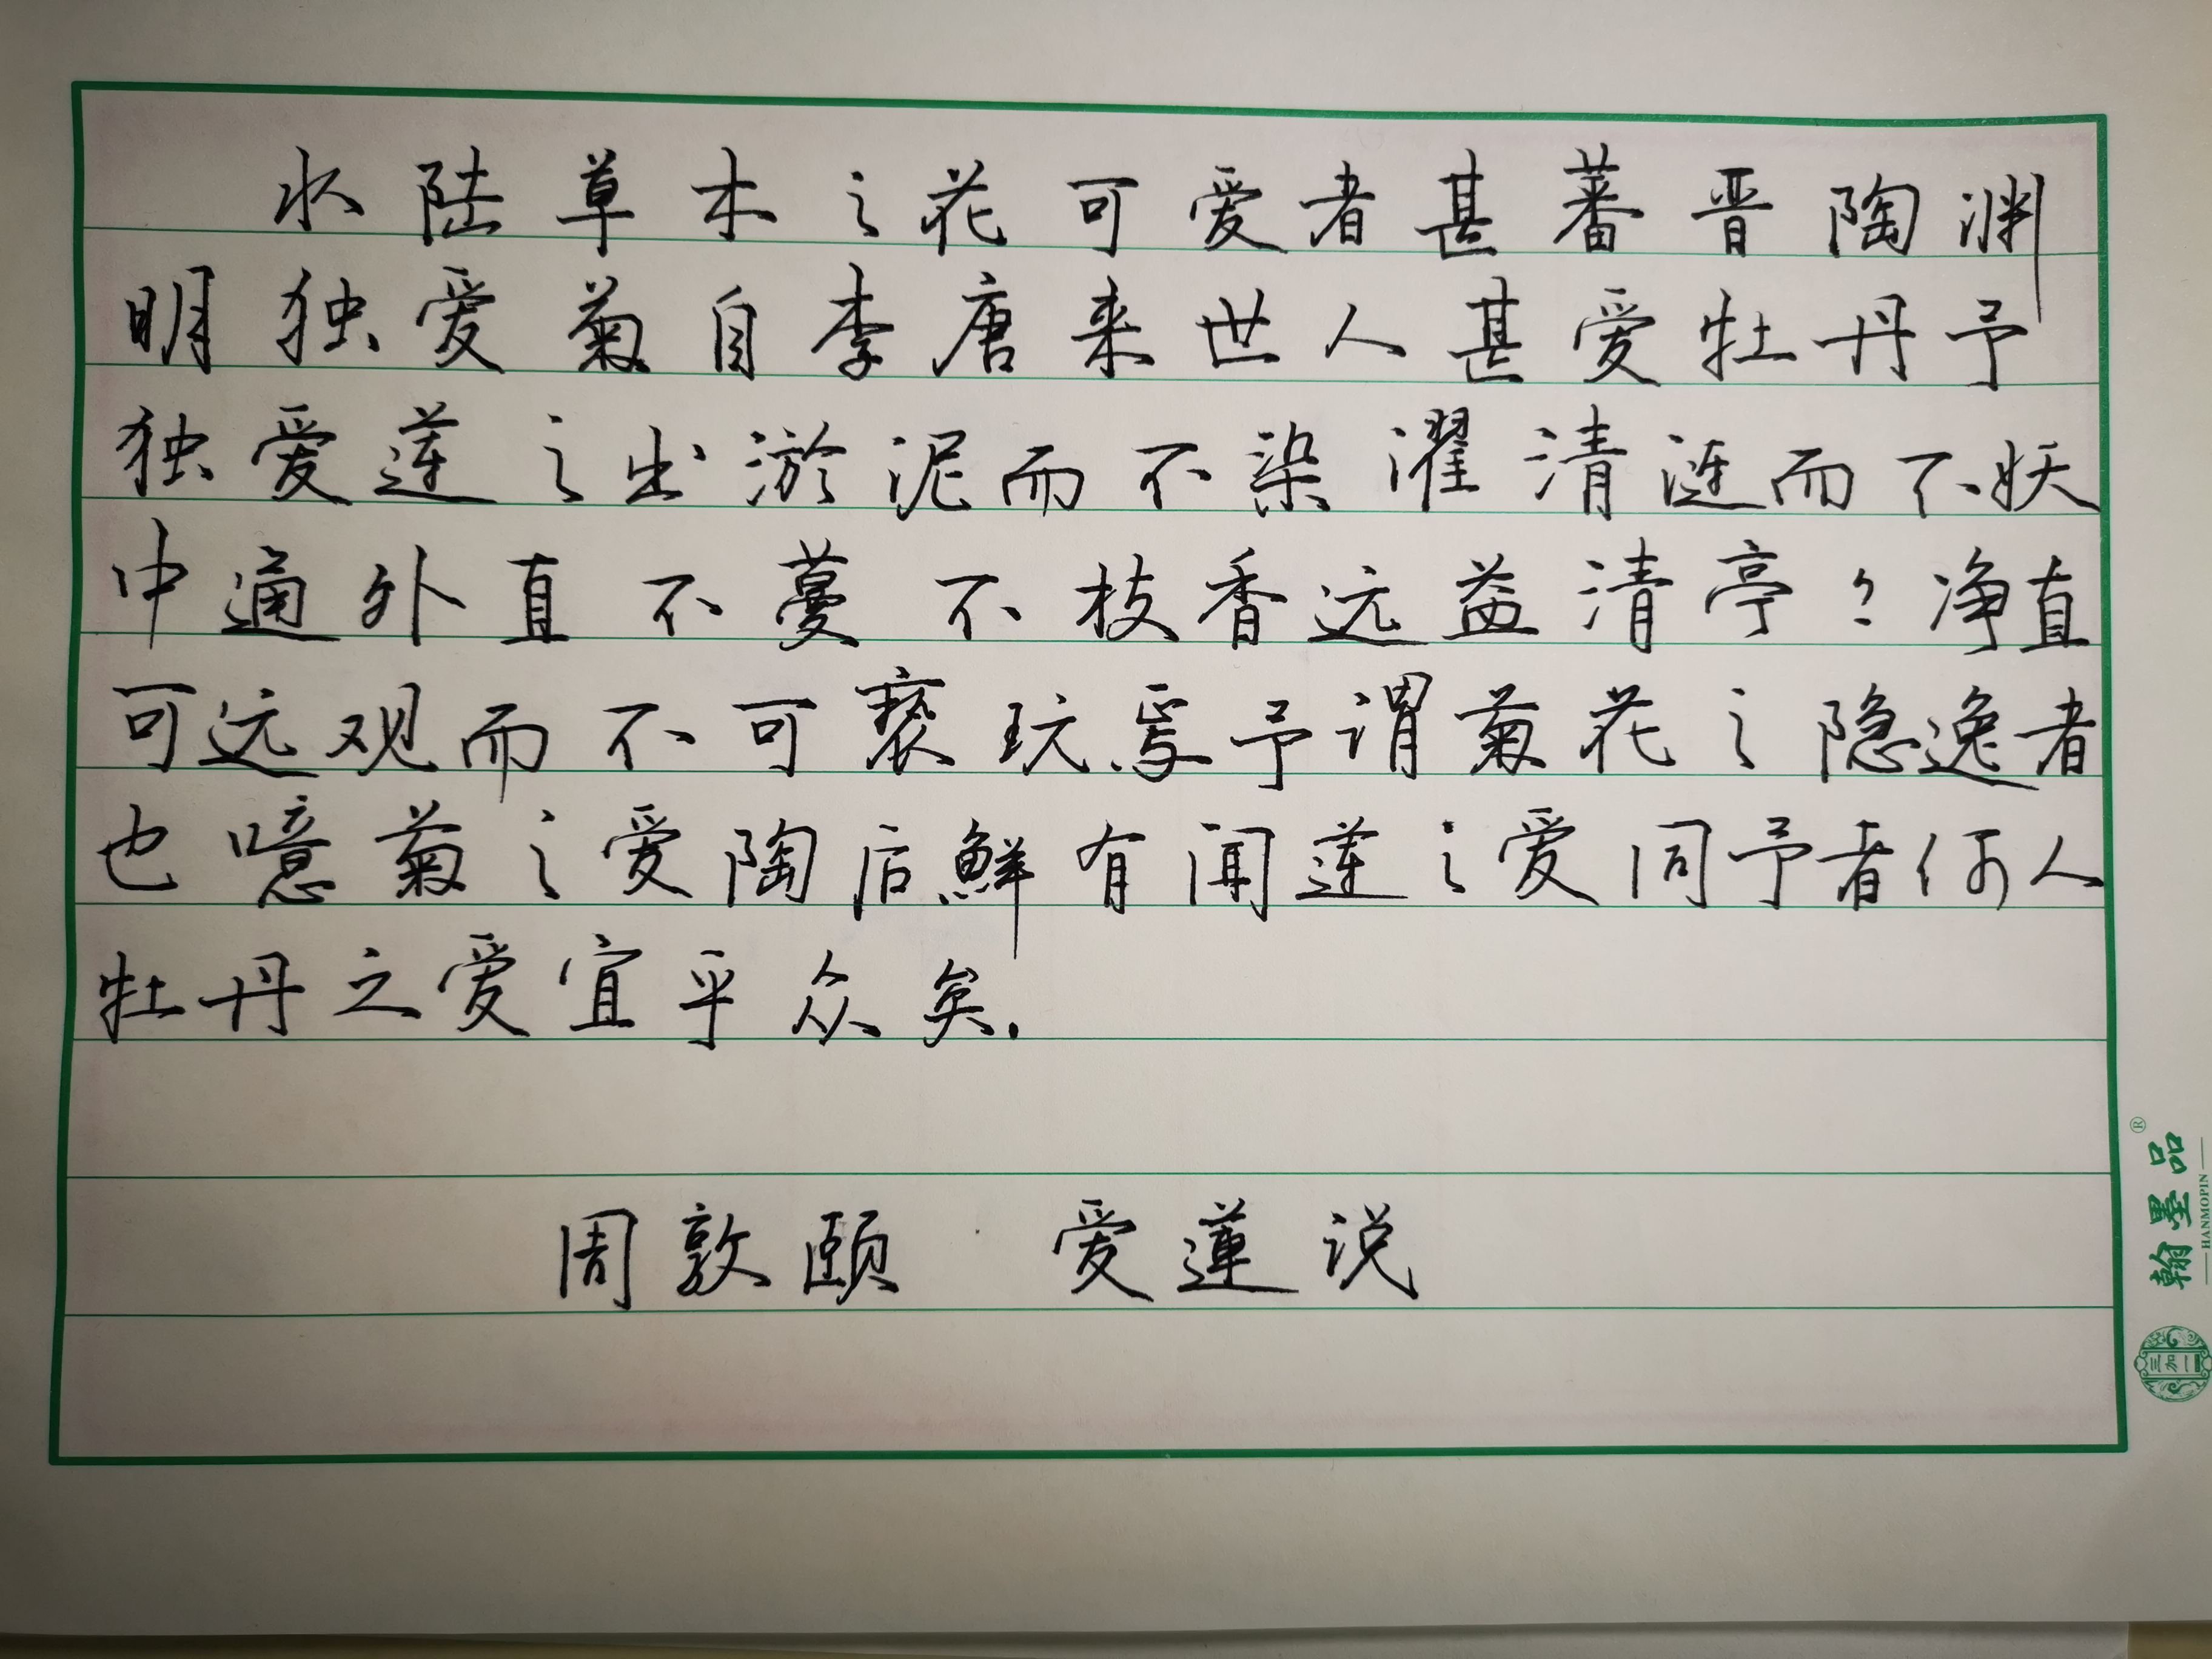 水陆草木之花可爱者甚蕃晋陶渊
明独爱菊自李唐来世人甚爱牡丹予
独爱莲之出淤泥而不染濯清涟而不妖
中通外直不蔓不枝香远益清亭々净直
可远观而不可亵玩焉予谓菊花之隐逸者
也噫菊之爱陶后鲜有闻莲之爱同予者何人
牡丹之爱宜乎众矣.
周敦颐 爱莲说
翰墨品®
HANMOPIN
三加一